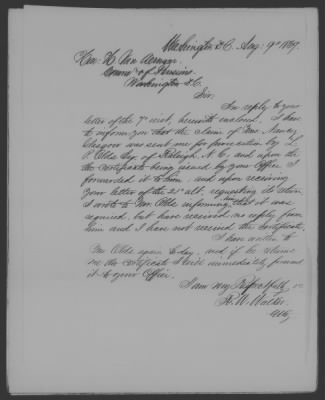 Washington D.C. Aug. 9th 1869.
Hon. H. Van Aernam
Comr of Pensions
Washington D.C.
Sir.
In reply to your
letter of the 7" inst, herewith enclosed. I have
to inform you that the claim of Mrs Nancy
Glasgow was sent me for prosecution by L.
P. Olds Esq. of Raleigh, N.C. and upon the
the certificate being issued by your Office I
forwarded it to him, and upon receiving
your letter of the 21" ult, requesting its return
I wrote to Mr. Olds informing him that it was
required, but have received no reply from
him and I have not received the certificate.
I have written to
Mr Olds again today, and if he returns
me the certificate I will immediately forward
it to your Office.
I am very Respectfully
H. W. Walker
Atty